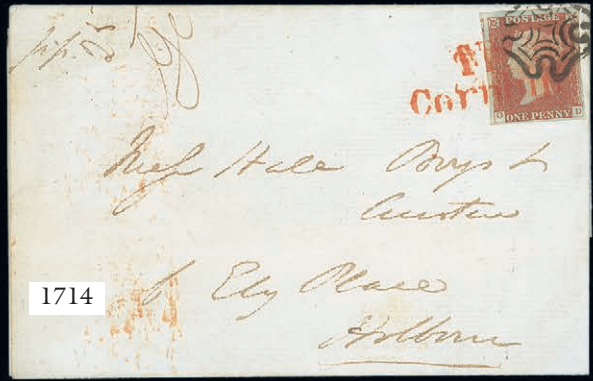 POSTAGE
Corn
O D
ONE PENNY
Messrs Hale Boys &
Austen
6 Ely Place
Holborn
1714